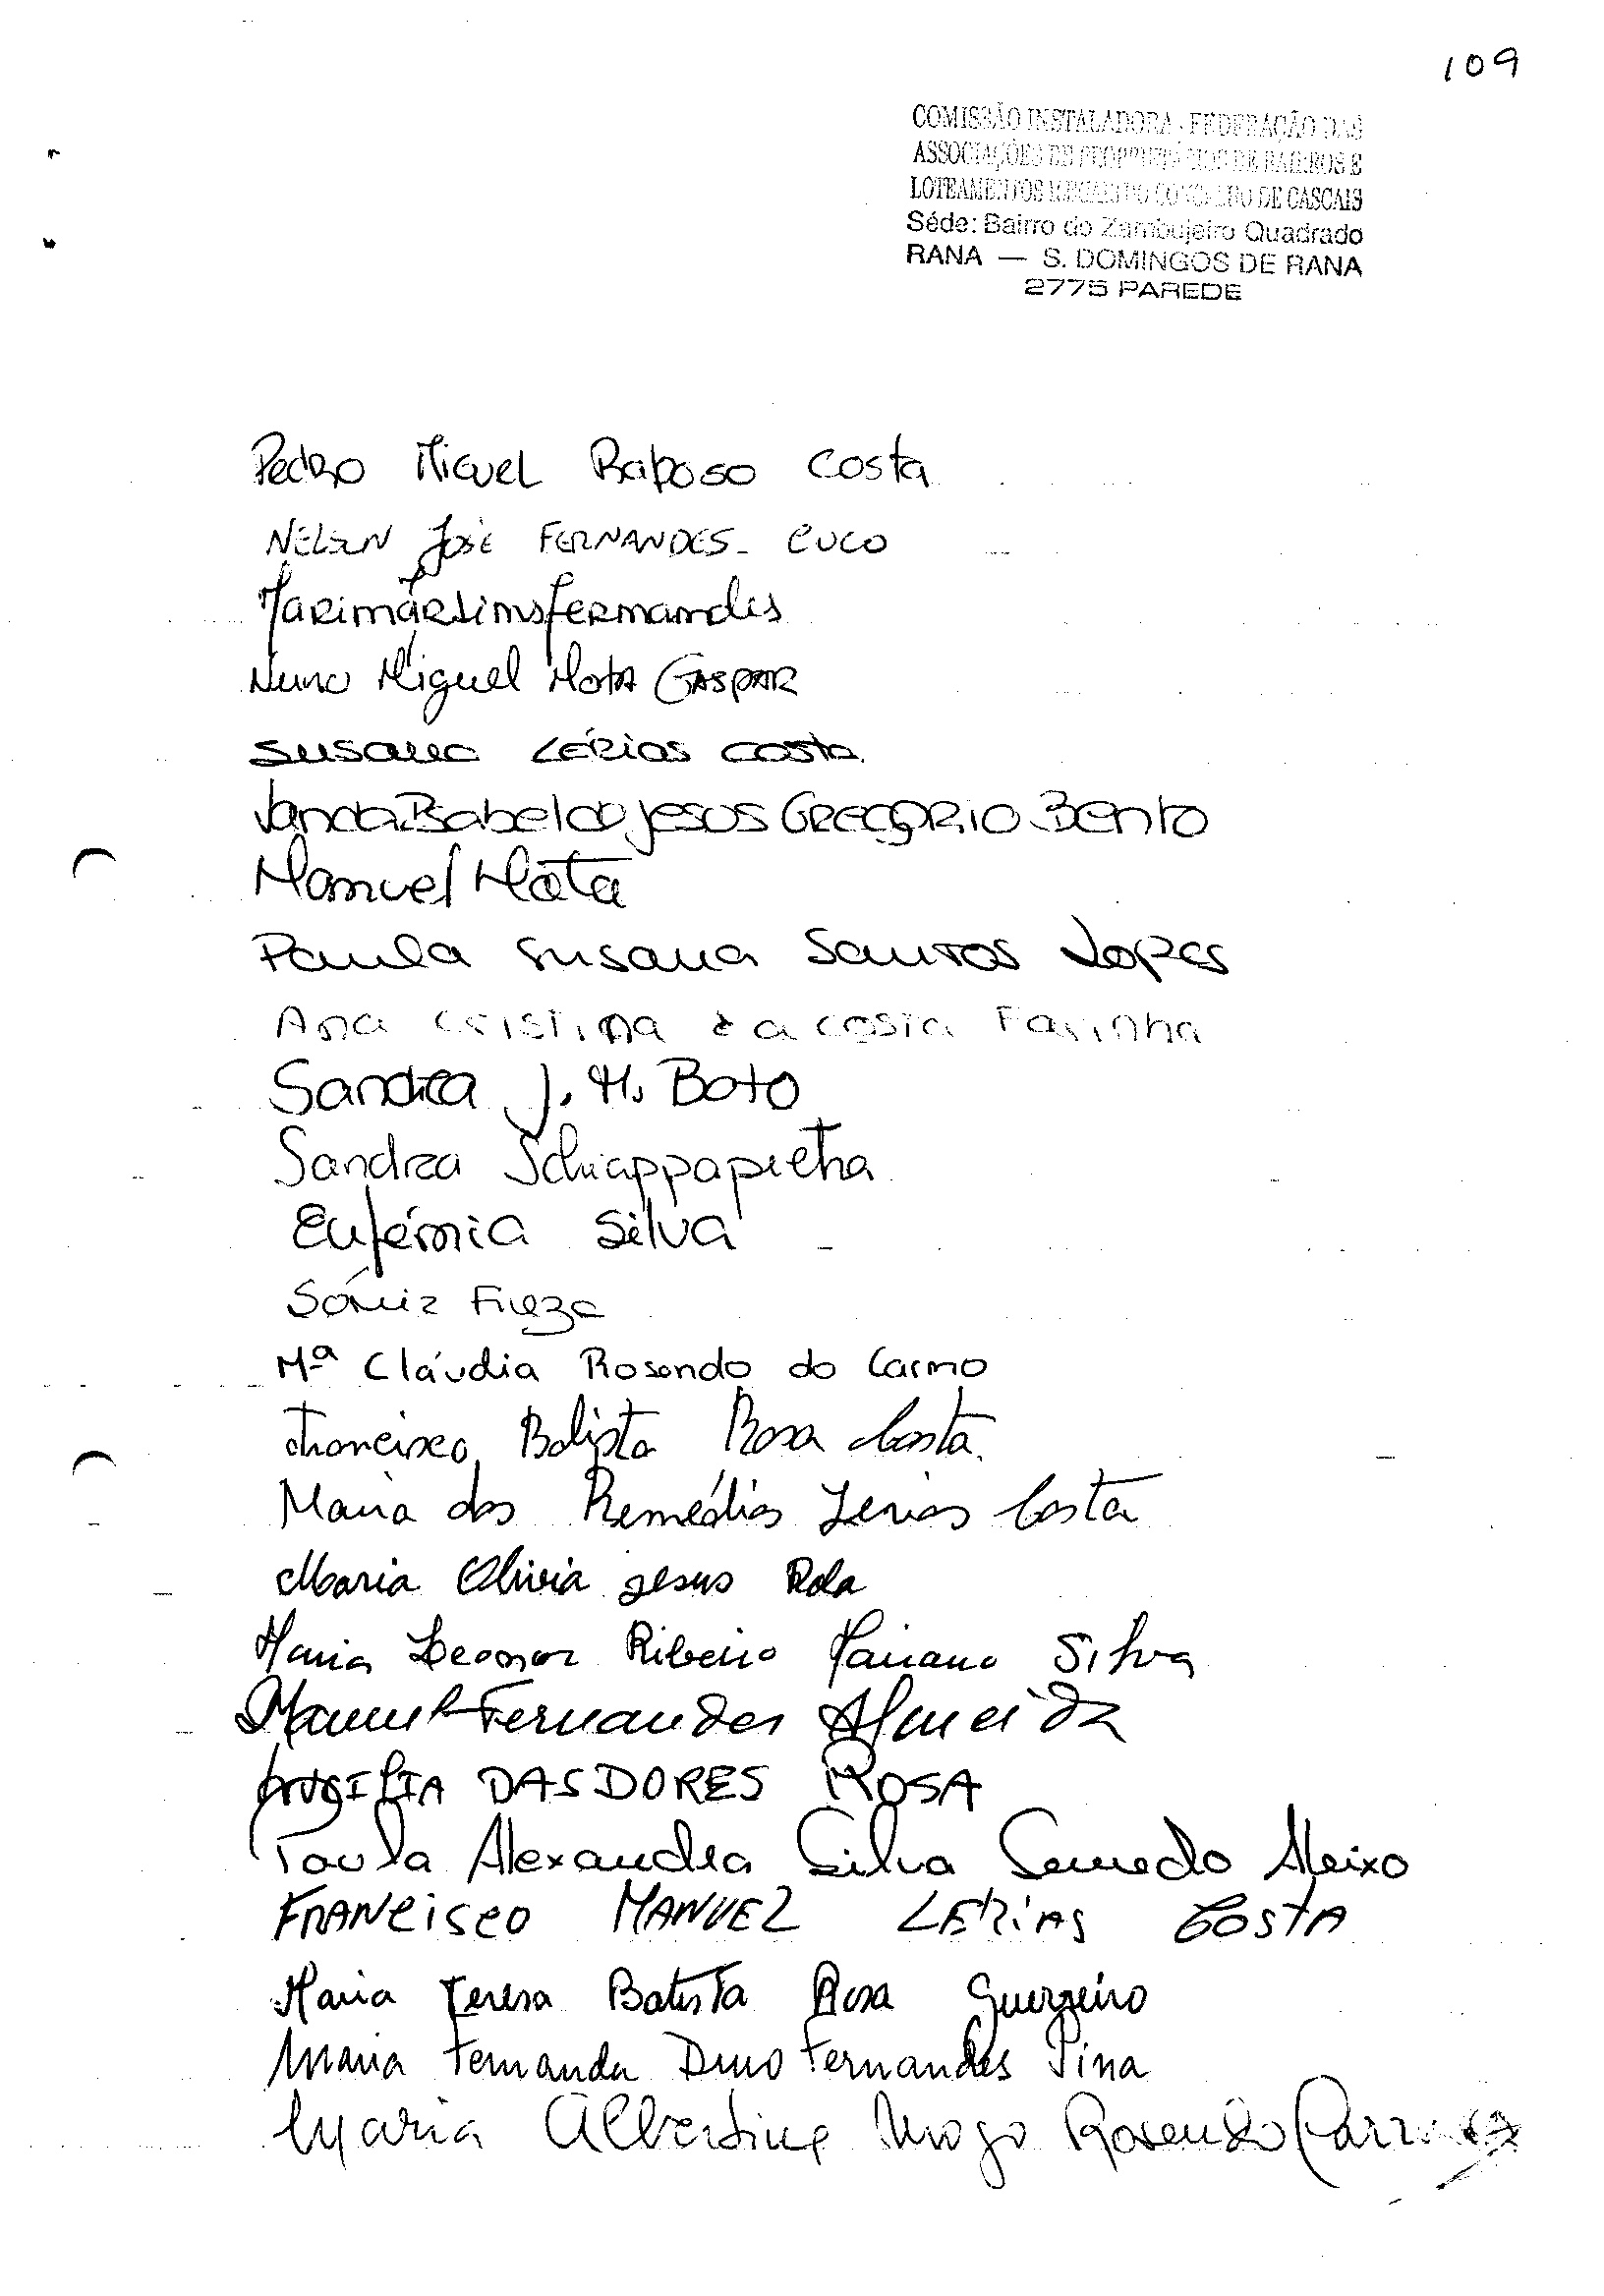 109
COMISSÃO INSTALADORA - FEDERAÇÃO DAS
ASSOCIAÇÕES DE PROPRIETÁRIOS DE BAIRROS E
LOTEAMENTOS ILEGAIS DO CONCELHO DE CASCAIS
Séde: Bairro do Zambujeiro Quadrado
RANA — S. DOMINGOS DE RANA
2775 PAREDE
Pedro Miguel Raposo Costa
NELSON José FERNANDES CUCO
Martins Fernandes
Nuno Miguel Mota GASPAR
Susana LÉRIAS COSTA
Vanda Isabel de Jesus GREGORIO Bento
Manuel Mota
Paula Susana Santos Lopes
Ana Cristina da Costa Farinha
Sandra J. M. Boto
Sandra Schiappapietra
Eufémia Silva
Sónia Fieza
Mª Cláudia Rosendo do Carmo
Francisco Batista Rosa Costa
Maria dos Remédios Lerias Costa
Maria Olivia Jesus Rola
Maria Leonor Ribeiro Mariano Silva
Manuel Fernandes Almeida
DAS DORES ROSA
Paula Alexandra Silva Semedo Aleixo
FRANCISCO MANUEL LERIAS COSTA
Maria Teresa Batista Rosa Guerreiro
Maria Fernanda Duro Fernandes Pina
Maria Albertina Rosendo